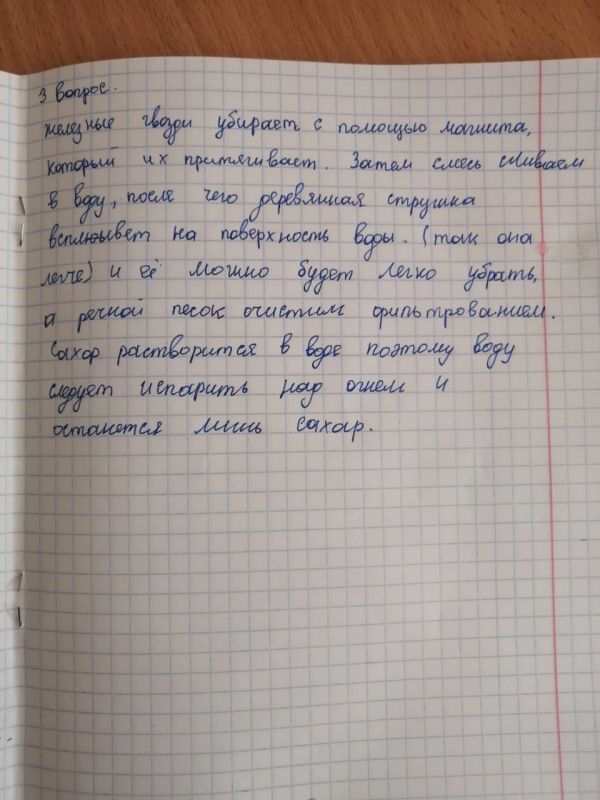 3 вопрос.
железные гвозди убирает с помощью магнита,
который их притягивает. Затем смесь сливаем
в воду, после чего деревянная стружка
всплывет на поверхность воды. (так она
легче) и её можно будет легко убрать,
а речной песок очистим фильтрованием.
Сахар растворится в воде поэтому воду
следует испарить над огнем и
останется лишь сахар.